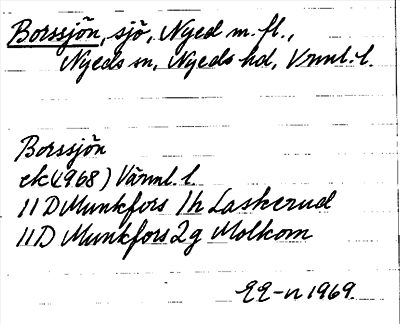 Borssjön, sjö, Nyed m.fl.,
Nyeds sn, Nyeds hd, Vrml. l.
Borssjön
ek (1968) Värml. l.
11 D Munkfors 1h Laskerud
11D Munkfors 2g Molkom
1969.